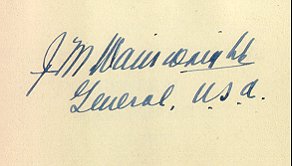 J M Wainwright
General, U.S.A.